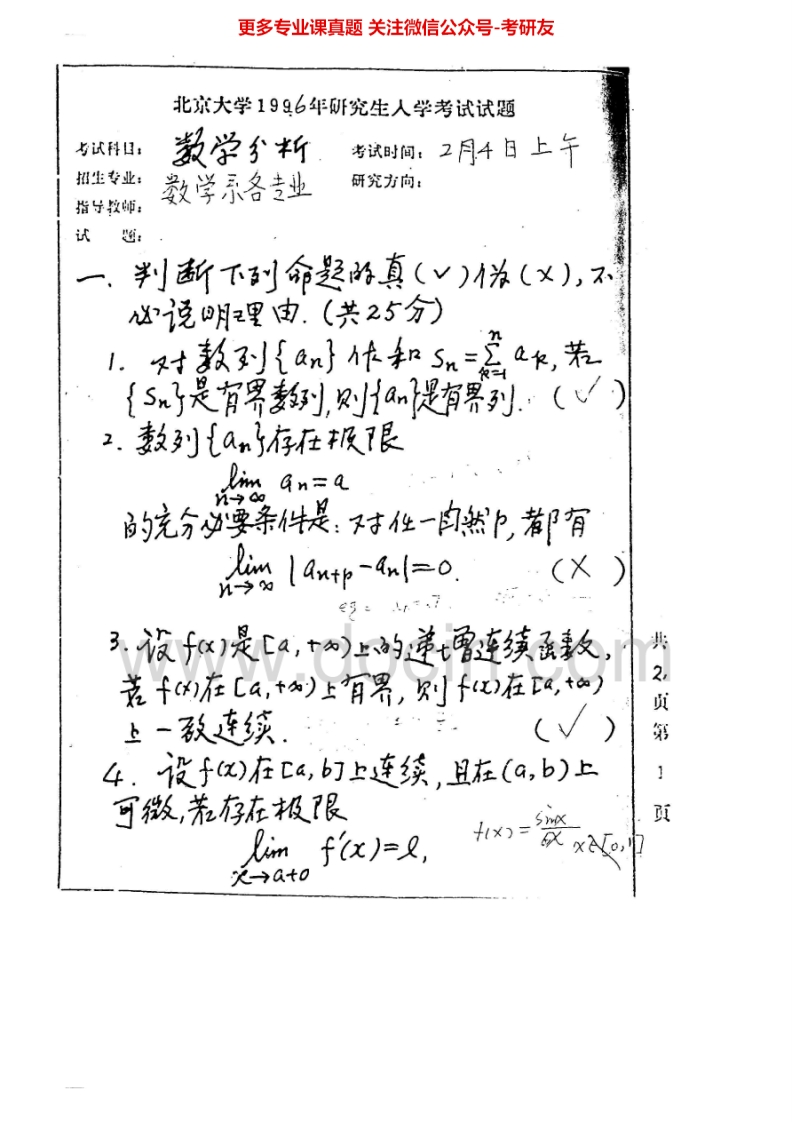 更多专业课真题 关注微信公众号-考研友
北京大学1996年研究生入学考试试题
考试科目: 数学分析 考试时间: 2月4日上午
招生专业: 数学系各专业 研究方向:
指导教师:
试 题:
一. 判断下列命题的真(✓)伪(×), 不
必说明理由. (共25分)
1. 对数列{aₙ}作和 Sₙ=∑ₖ₌₁ⁿ aₖ, 若
{Sₙ}是有界数列, 则{aₙ}是有界列. (✓)
2. 数列{aₙ}存在极限
lim aₙ=a
n→∞
的充分必要条件是: 对任一自然p, 都有
lim |aₙ₊ₚ-aₙ|=0. (×)
n→∞
3. 设f(x)是[a,+∞)上的递增连续函数,
若f(x)在[a,+∞)上有界, 则f(x)在[a,+∞)
上一致连续. (✓)
4. 设f(x)在[a,b]上连续, 且在(a,b)上
可微, 若存在极限
lim f'(x)=l,
x→a+0
f(x)=
sinx
共2页第1页
www.docin.com